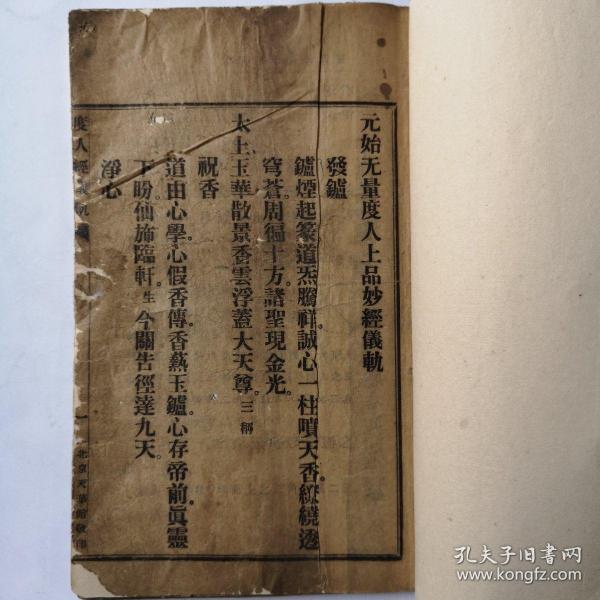 元始无量度人上品妙經儀軌
發鑪
鑪煙起篆。道炁騰祥。誠心一柱噴天香。繚繞透
穹蒼。周徧十方。諸聖現金光。
太上玉華散景香雲浮蓋大天尊。三稱
祝香
道由心學。心假香傳。香爇玉鑪。心存帝前。眞靈
下盼。仙旆臨軒。生今關告。徑達九天。
淨心
度人經儀軌
一
北京天華館敬印
孔夫子旧书网
www.kongfz.com